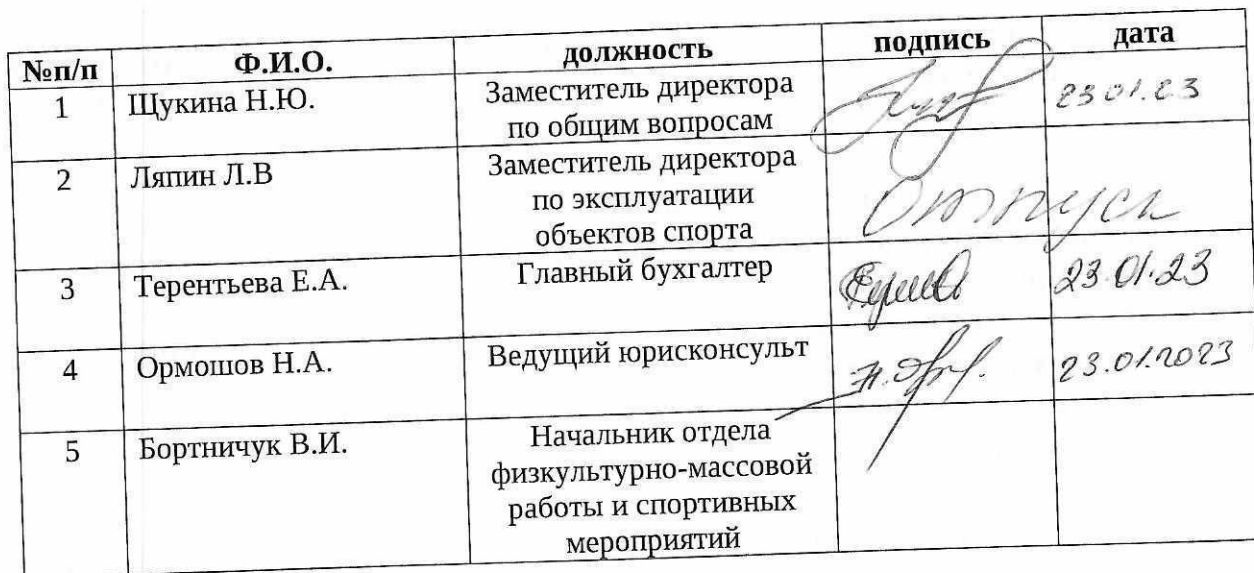 №п/п Ф.И.О. должность подпись дата
1 Щукина Н.Ю. Заместитель директора 23.01.23
по общим вопросам
2 Ляпин Л.В Заместитель директора
по эксплуатации Отпуск
объектов спорта
3 Терентьева Е.А. Главный бухгалтер 23.01.23
4 Ормошов Н.А. Ведущий юрисконсульт 23.01.2023
5 Бортничук В.И. Начальник отдела
физкультурно-массовой
работы и спортивных
мероприятий